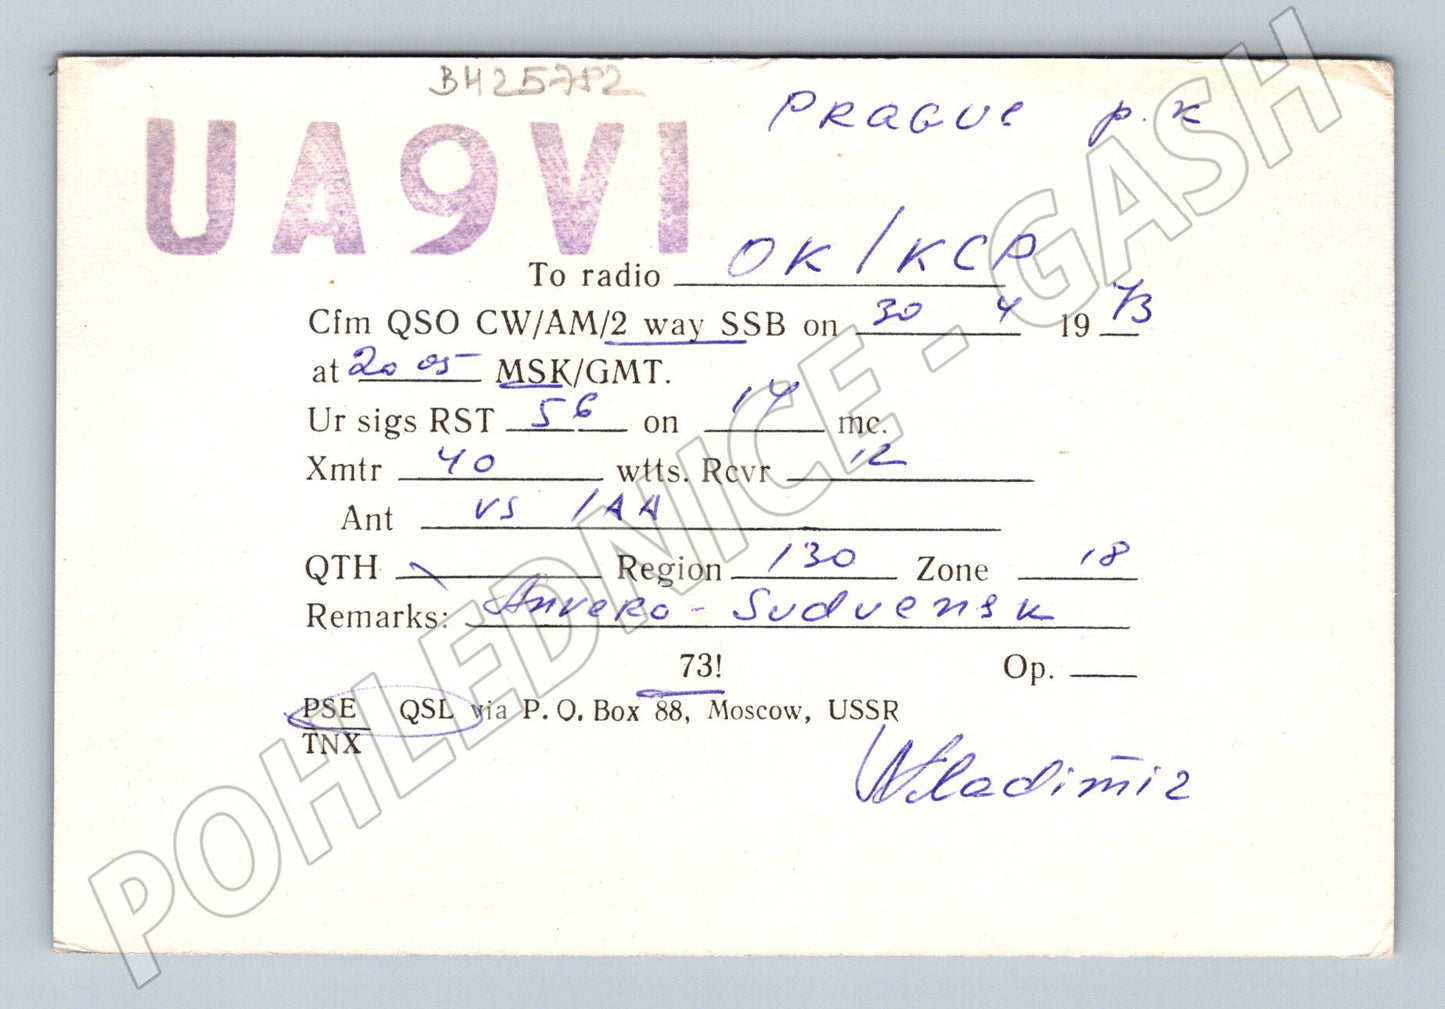 BH25782
PRAGUE p. k
UA9VI
To radio OK/KCP
Cfm QSO CW/AM/2 way SSB on 30 4 1973
at 20 05 MSK/GMT.
Ur sigs RST 56 on 14 mc.
Xmtr 40 wtts. Rcvr 12
Ant VS 1AA
QTH Region 130 Zone 18
Remarks: Anvero-Sudvensk
73! Op.
PSE QSL via P. O. Box 88, Moscow, USSR
TNX
Wladimir
POHLEDNICE - GASH